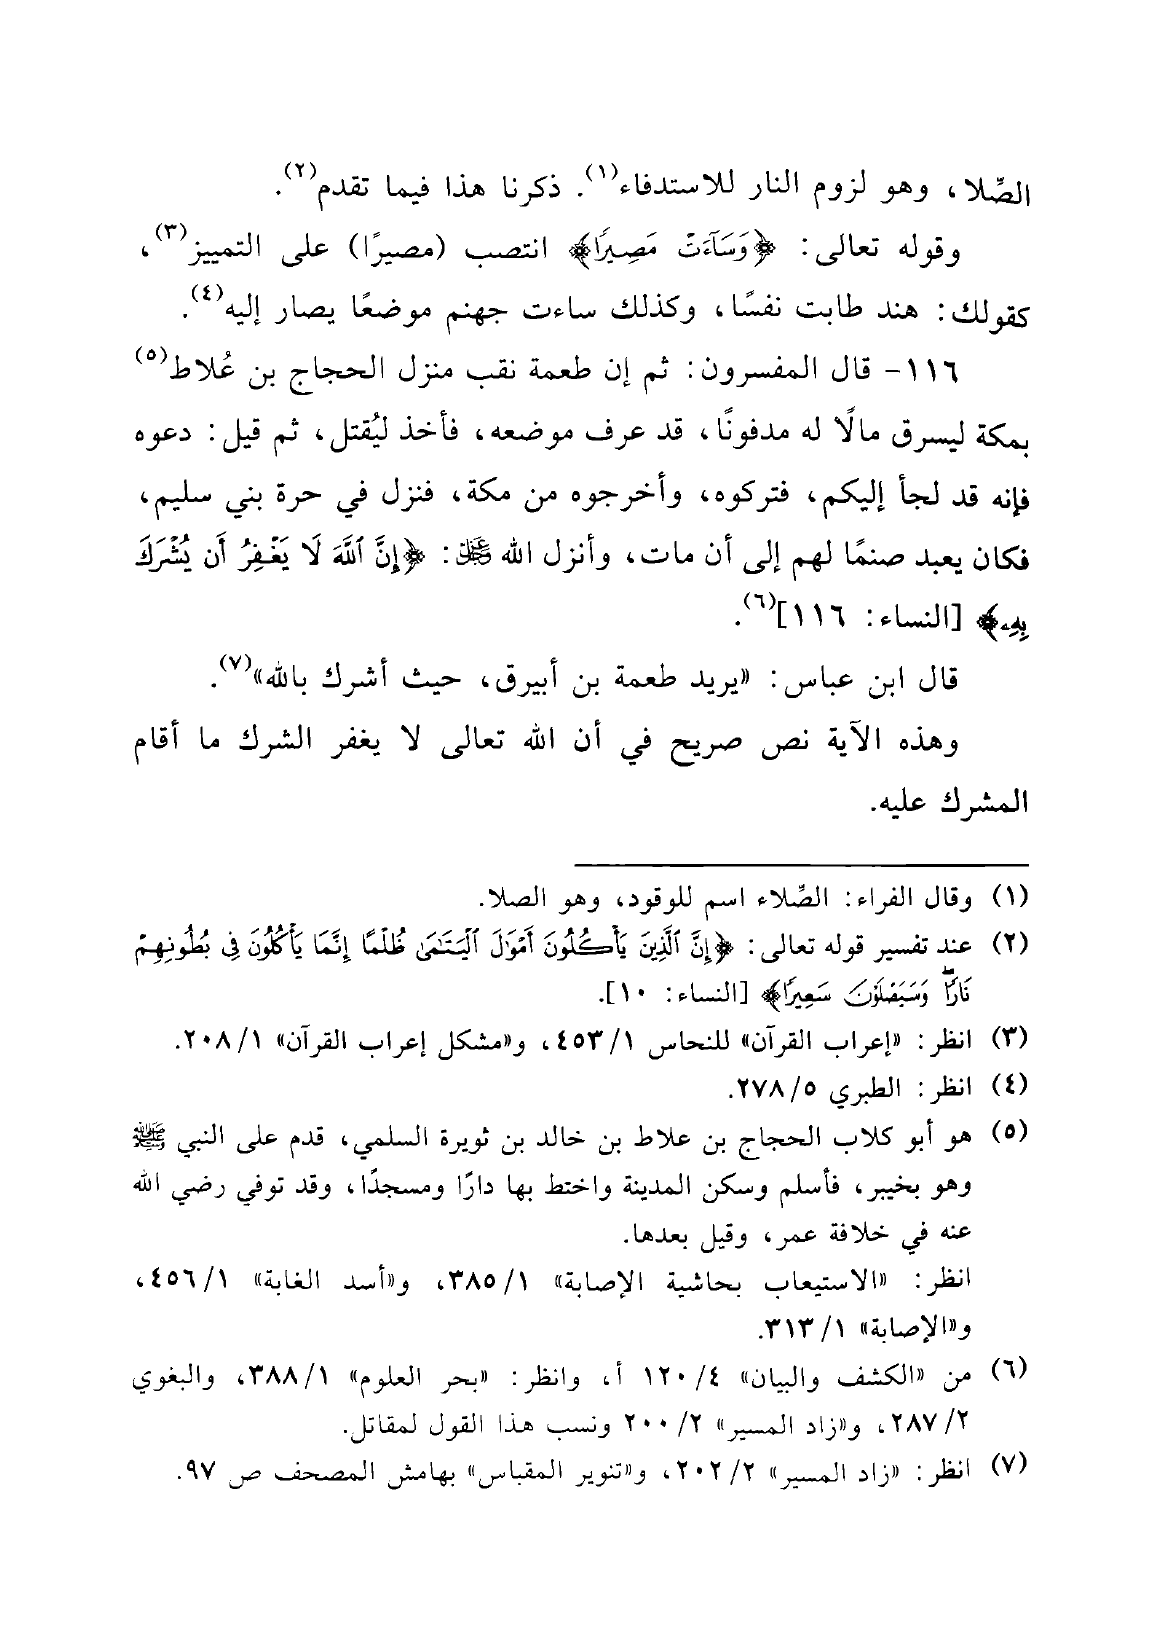 الصِّلا، وهو لزوم النار للاستدفاء(١). ذكرنا هذا فيما تقدم(٢).
وقوله تعالى: ﴿وَسَآءَتْ مَصِيرًا﴾ انتصب (مصيرًا) على التمييز(٣)،
كقولك: هند طابت نفسًا، وكذلك ساءت جهنم موضعًا يصار إليه(٤).
١١٦- قال المفسرون: ثم إن طعمة نقب منزل الحجاج بن عُلاط(٥)
بمكة ليسرق مالًا له مدفونًا، قد عرف موضعه، فأخذ ليُقتل، ثم قيل: دعوه
فإنه قد لجأ إليكم، فتركوه، وأخرجوه من مكة، فنزل في حرة بني سليم،
فكان يعبد صنمًا لهم إلى أن مات، وأنزل الله ﷿: ﴿إِنَّ ٱللَّهَ لَا يَغْفِرُ أَن يُشْرَكَ
بِهِۦ﴾ [النساء: ١١٦](٦).
قال ابن عباس: «يريد طعمة بن أبيرق، حيث أشرك بالله»(٧).
وهذه الآية نص صريح في أن الله تعالى لا يغفر الشرك ما أقام
المشرك عليه.
(١) وقال الفراء: الصِّلاء اسم للوقود، وهو الصلا.
(٢) عند تفسير قوله تعالى: ﴿إِنَّ ٱلَّذِينَ يَأْكُلُونَ أَمْوَٰلَ ٱلْيَتَٰمَىٰ ظُلْمًا إِنَّمَا يَأْكُلُونَ فِى بُطُونِهِمْ
نَارًاۖ وَسَيَصْلَوْنَ سَعِيرًا﴾ [النساء: ١٠].
(٣) انظر: «إعراب القرآن» للنحاس ١/ ٤٥٣، و«مشكل إعراب القرآن» ١/ ٢٠٨.
(٤) انظر: الطبري ٥/ ٢٧٨.
(٥) هو أبو كلاب الحجاج بن علاط بن خالد بن ثويرة السلمي، قدم على النبي ﷺ
وهو بخيبر، فأسلم وسكن المدينة واختط بها دارًا ومسجدًا، وقد توفي رضي الله
عنه في خلافة عمر، وقيل بعدها.
انظر: «الاستيعاب بحاشية الإصابة» ١/ ٣٨٥، و«أسد الغابة» ١/ ٤٥٦،
و«الإصابة» ١/ ٣١٣.
(٦) من «الكشف والبيان» ٤/ ١٢٠ أ، وانظر: «بحر العلوم» ١/ ٣٨٨، والبغوي
٢/ ٢٨٧، و«زاد المسير» ٢/ ٢٠٠ ونسب هذا القول لمقاتل.
(٧) انظر: «زاد المسير» ٢/ ٢٠٢، و«تنوير المقباس» بهامش المصحف ص ٩٧.